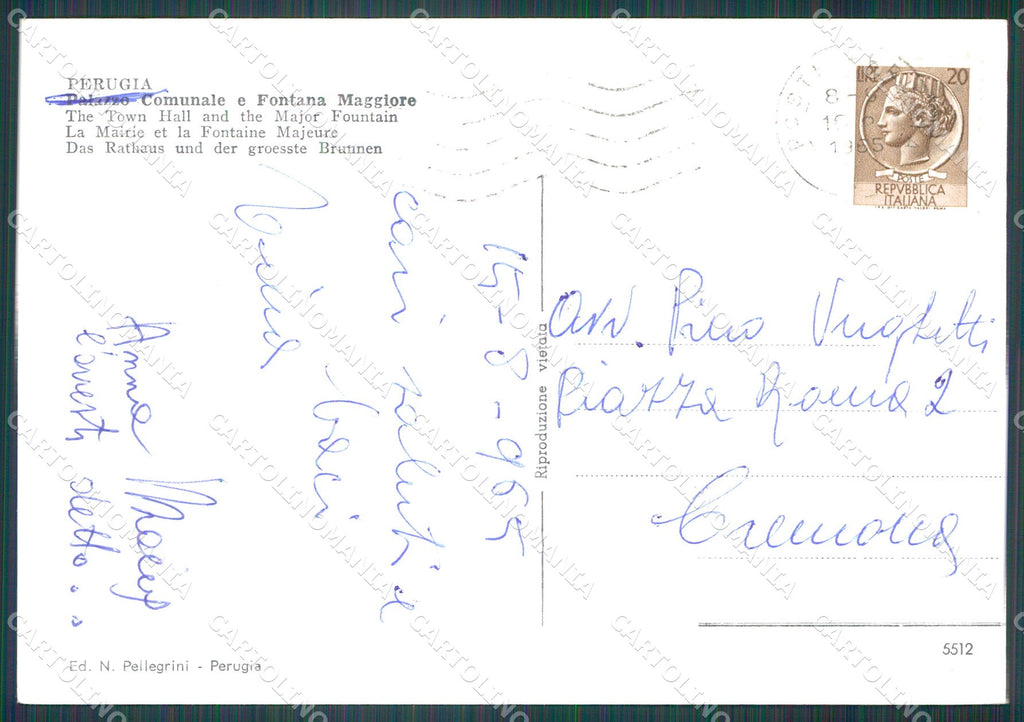 PERUGIA
Palazzo Comunale e Fontana Maggiore
The Town Hall and the Major Fountain
La Mairie et la Fontaine Majeure
Das Rathaus und der groesste Brunnen
LIRE 20
POSTE
REPVBBLICA
ITALIANA
1965
15-8-965
cari saluti e
baci
Anna Maria
Riproduzione vietata
Avv. Piero Vughetti
Piazza Roma 2
Cremona
Ed. N. Pellegrini - Perugia
5512
CARTOLINOMANIA